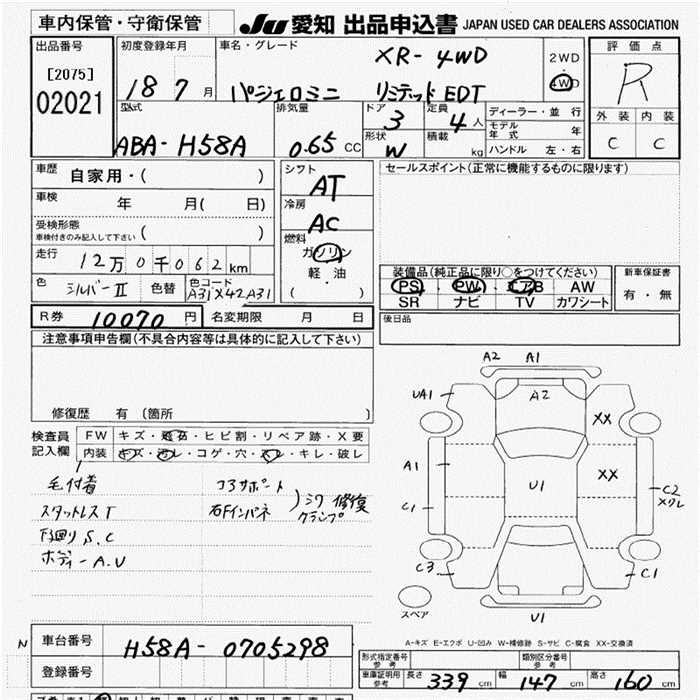 車内保管・守衛保管 JU 愛知 出品申込書 JAPAN USED CAR DEALERS ASSOCIATION
出品番号 初度登録年月 車名・グレード 評価点
[2075]
02021
18 7 月
パジェロミニ
XR-4WD
リミテッド EDT
2WD
4WD
R
外装 内装
C C
型式 ABA-H58A
排気量 0.65 CC
ドア 3
形状 W
定員 4 人
積載 kg
ディーラー・並行
モデル年式 年
ハンドル 左・右
車歴 自家用・( )
シフト AT
セールスポイント(正常に機能するものに限ります)
車検 年 月( 日)
冷房 AC
受検形態
車検付きのみ記入して下さい ( )
燃料
ガソリン
軽・油
( )
走行 12万0千062 km
色 シルバーII 色替 色コード A31X42A31
装備品(純正品に限り○をつけてください) 新車保証書
PS・PW・エアB AW
SR ナビ TV カワシート
有・無
R券 10070 円 名変期限 月 日
後日品
注意事項申告欄(不具合内容等は具体的に記入して下さい)
修復歴 有 (箇所 )
検査員
記入欄
FW キズ・飛石・ヒビ割・リペア跡・X要
内装 キズ・汚レ・コゲ・穴・スレ・キレ・破レ
毛付着
スタットレスT
下廻りS.C
ボディーA.U
コアサポート
右Fインパネ
)シワ 修復
クランプ
A2 A1
UA1
A2
XX
A1
U1
XX
C1
C2
Xワレ
C3
C1
スペア
U1
A-キズ E-エクボ U-凹み W-補修跡 S-サビ C-腐食 XX-交換済
N
車台番号 H58A-0705298
登録番号
形式指定番号
参考
類別区分番号
参考
車庫証明用
参考
長さ 339 cm 幅 147 cm 高さ 160 cm